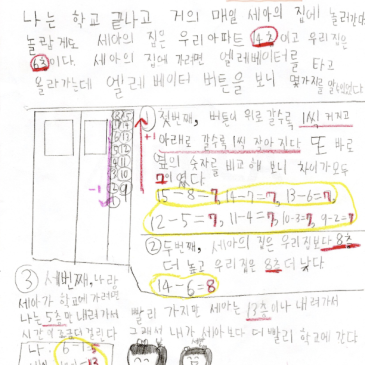 나는 학교 끝나고 거의 매일 세아의 집에 놀러간다
놀랍게도 세아의 집은 우리아파트 14층 이고 우리집은
6층이다. 세아의 집에 가려면 엘레베이터를 타고
올라가는데 엘레베이터 버튼을 보니 몇가지를 알수있었다
① 첫번째, 버튼이 위로 갈수록 1씩 커지고
+1 아래로 갈수록 1씩 작아지다 또 바로
옆의 숫자를 비교해 보니 차이가 모두
7의 였다.
-1
15-8=7, 14-7=7, 13-6=7,
12-5=7, 11-4=7, 10-3=7, 9-2=7
② 두번째, 세아의 집은 우리집보다 8층
더 높고 우리집은 8층 더 낮다.
14-6=8
③ 세번째, 나랑
세아가 학교에 가려면
나는 5층만 내려가서 빨리 가지만 세아는 13층이나 내려가서
시간이 조금 더 걸린다 그래서 내가 세아보다 더 빨리 학교에 간다
나- 6-1=5